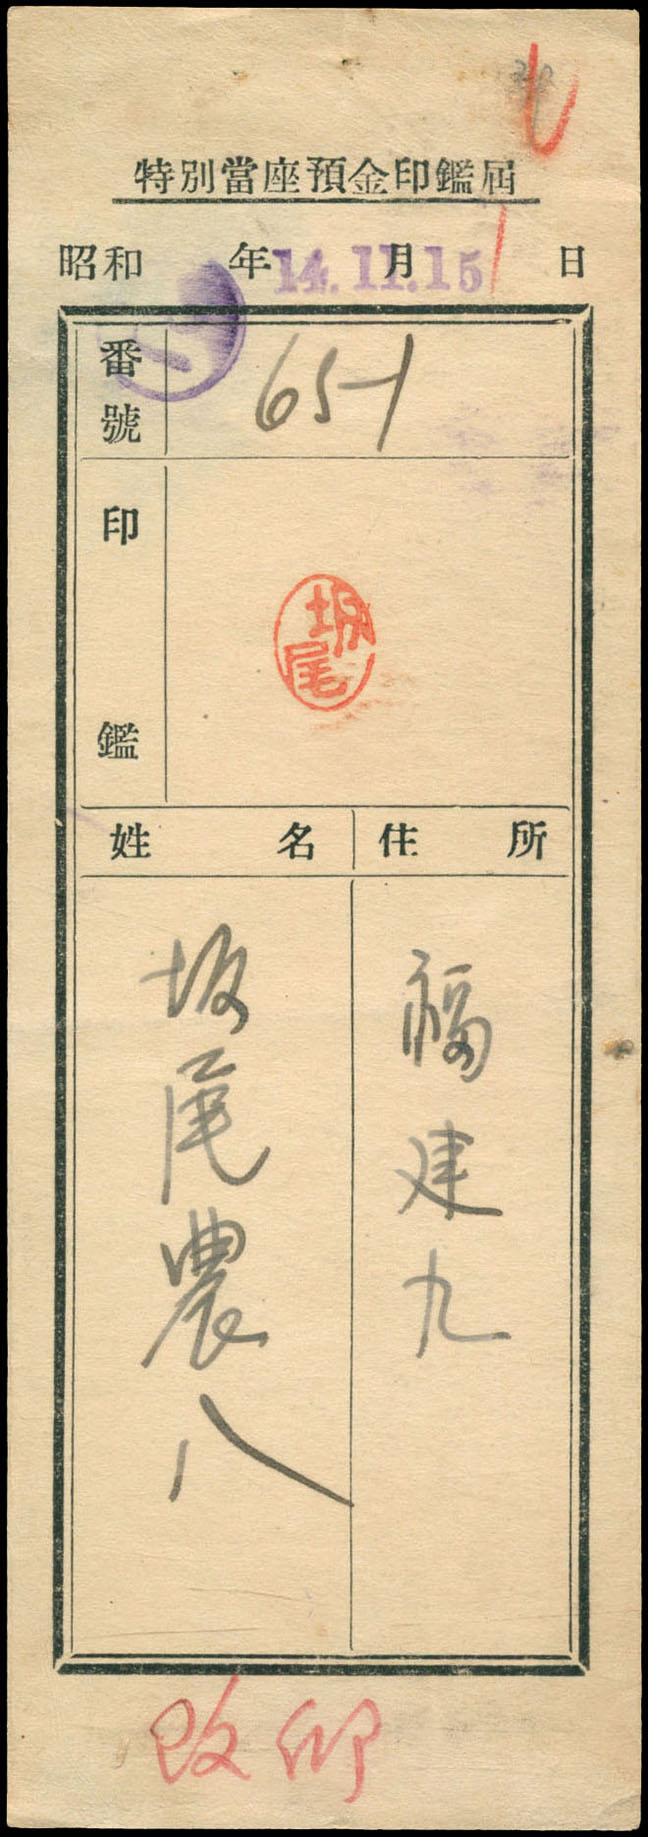 特別當座預金印鑑屆
昭和 年 月 日
14.11.15
番號
651
印鑑
坂尾
姓名
住所
坂尾農八
福建九
改印